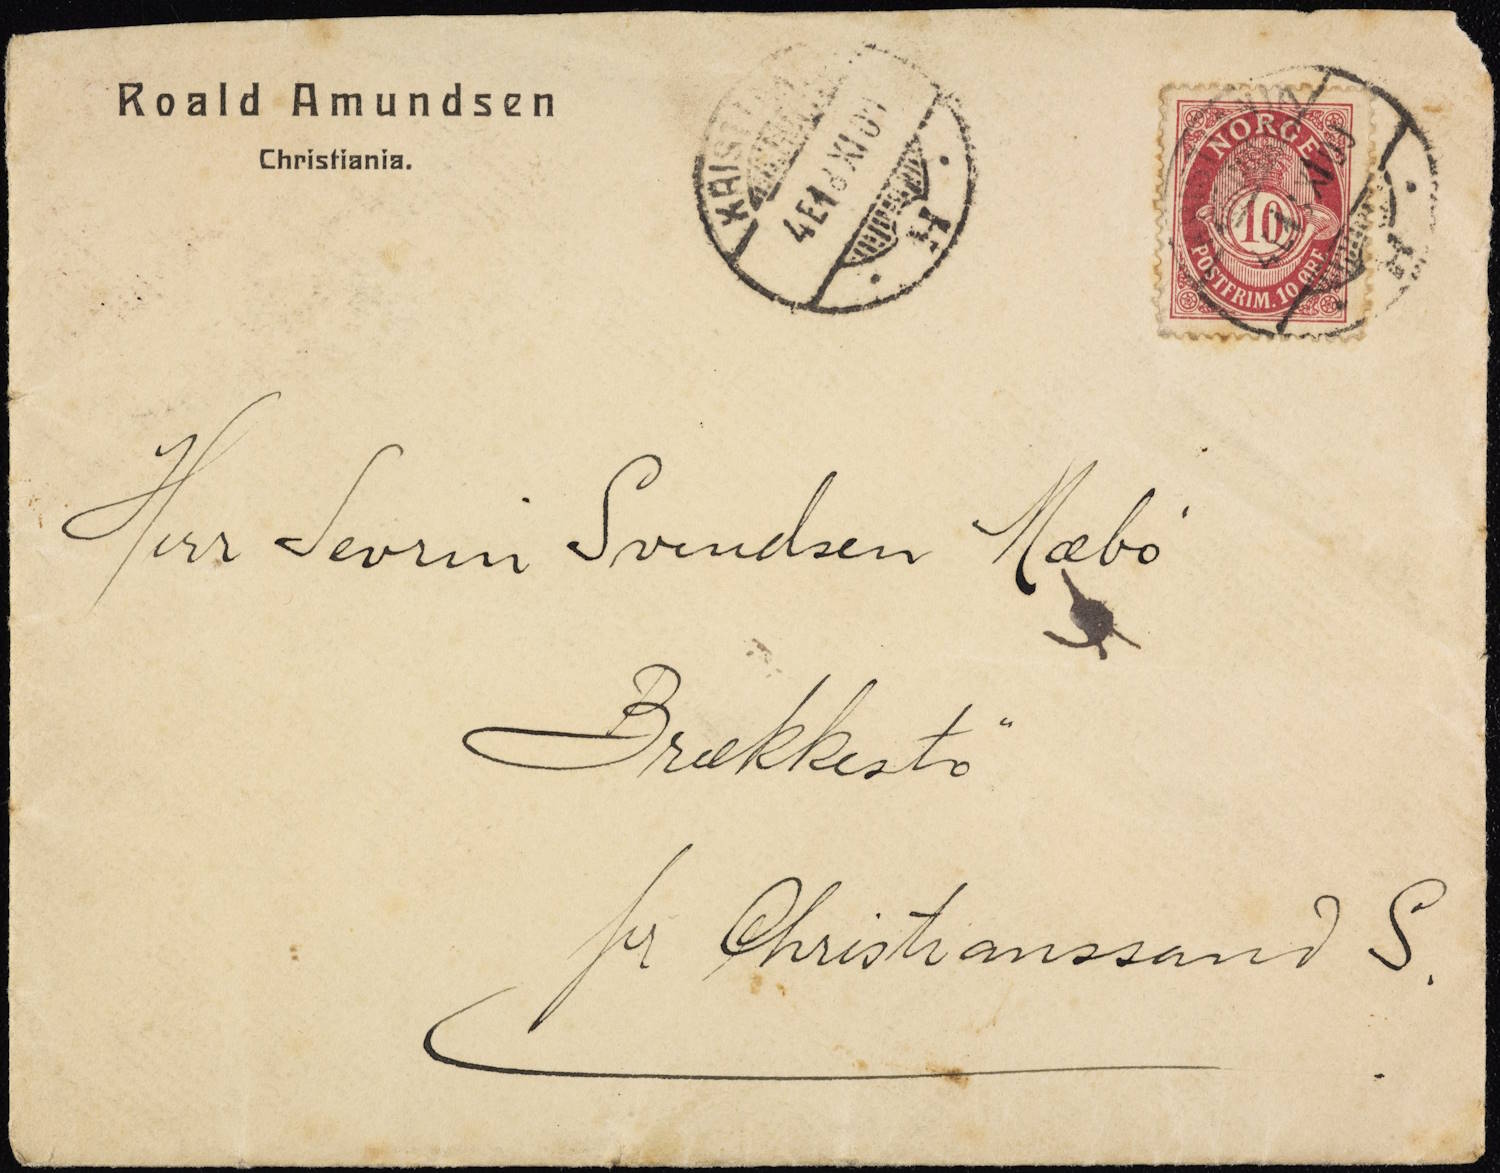 Roald Amundsen
Christiania.
KRISTIANIA
4E18 XI 09
H
NORGE
10
POSTFRIM. 10 ØRE
H
Herr Sevrin Svendsen Mæbö
Brækkestö
pr Christianssand S.